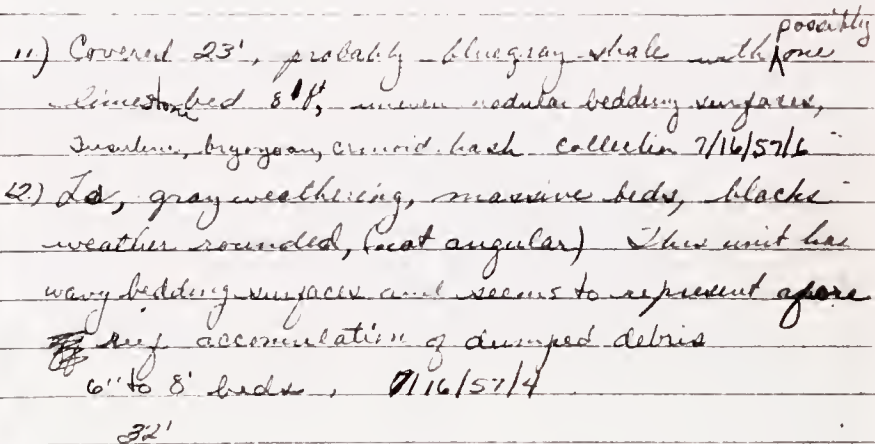 11.) Covered 23', probably bluegray shale with possibly one
limestone bed 8' ft, uneven nodular bedding surfaces,
Fusuline, bryozoan, crinoid hash collection 7/16/57/6
12.) Ls, gray weathering, massive beds, blocks
weather rounded, (not angular) This unit has
wavy bedding surfaces and seems to represent a fore
reef accomulation of dumped debris
6" to 8' beds, 7/16/57/4
32'